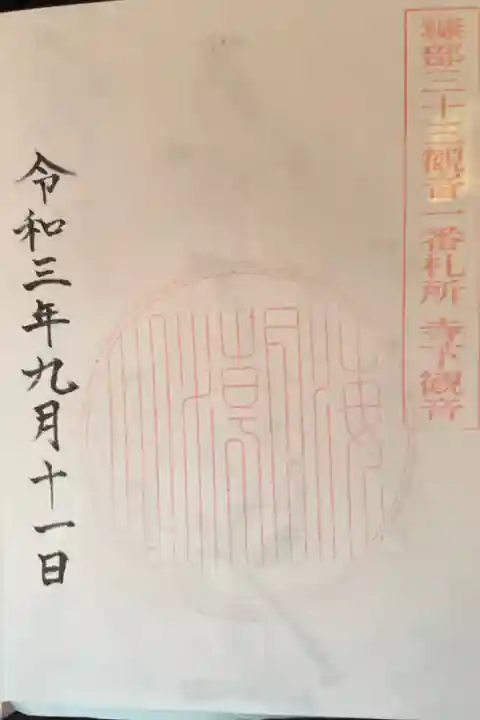 糠部三十三観音一番札所 寺下観音
海潮
令和三年九月十一日